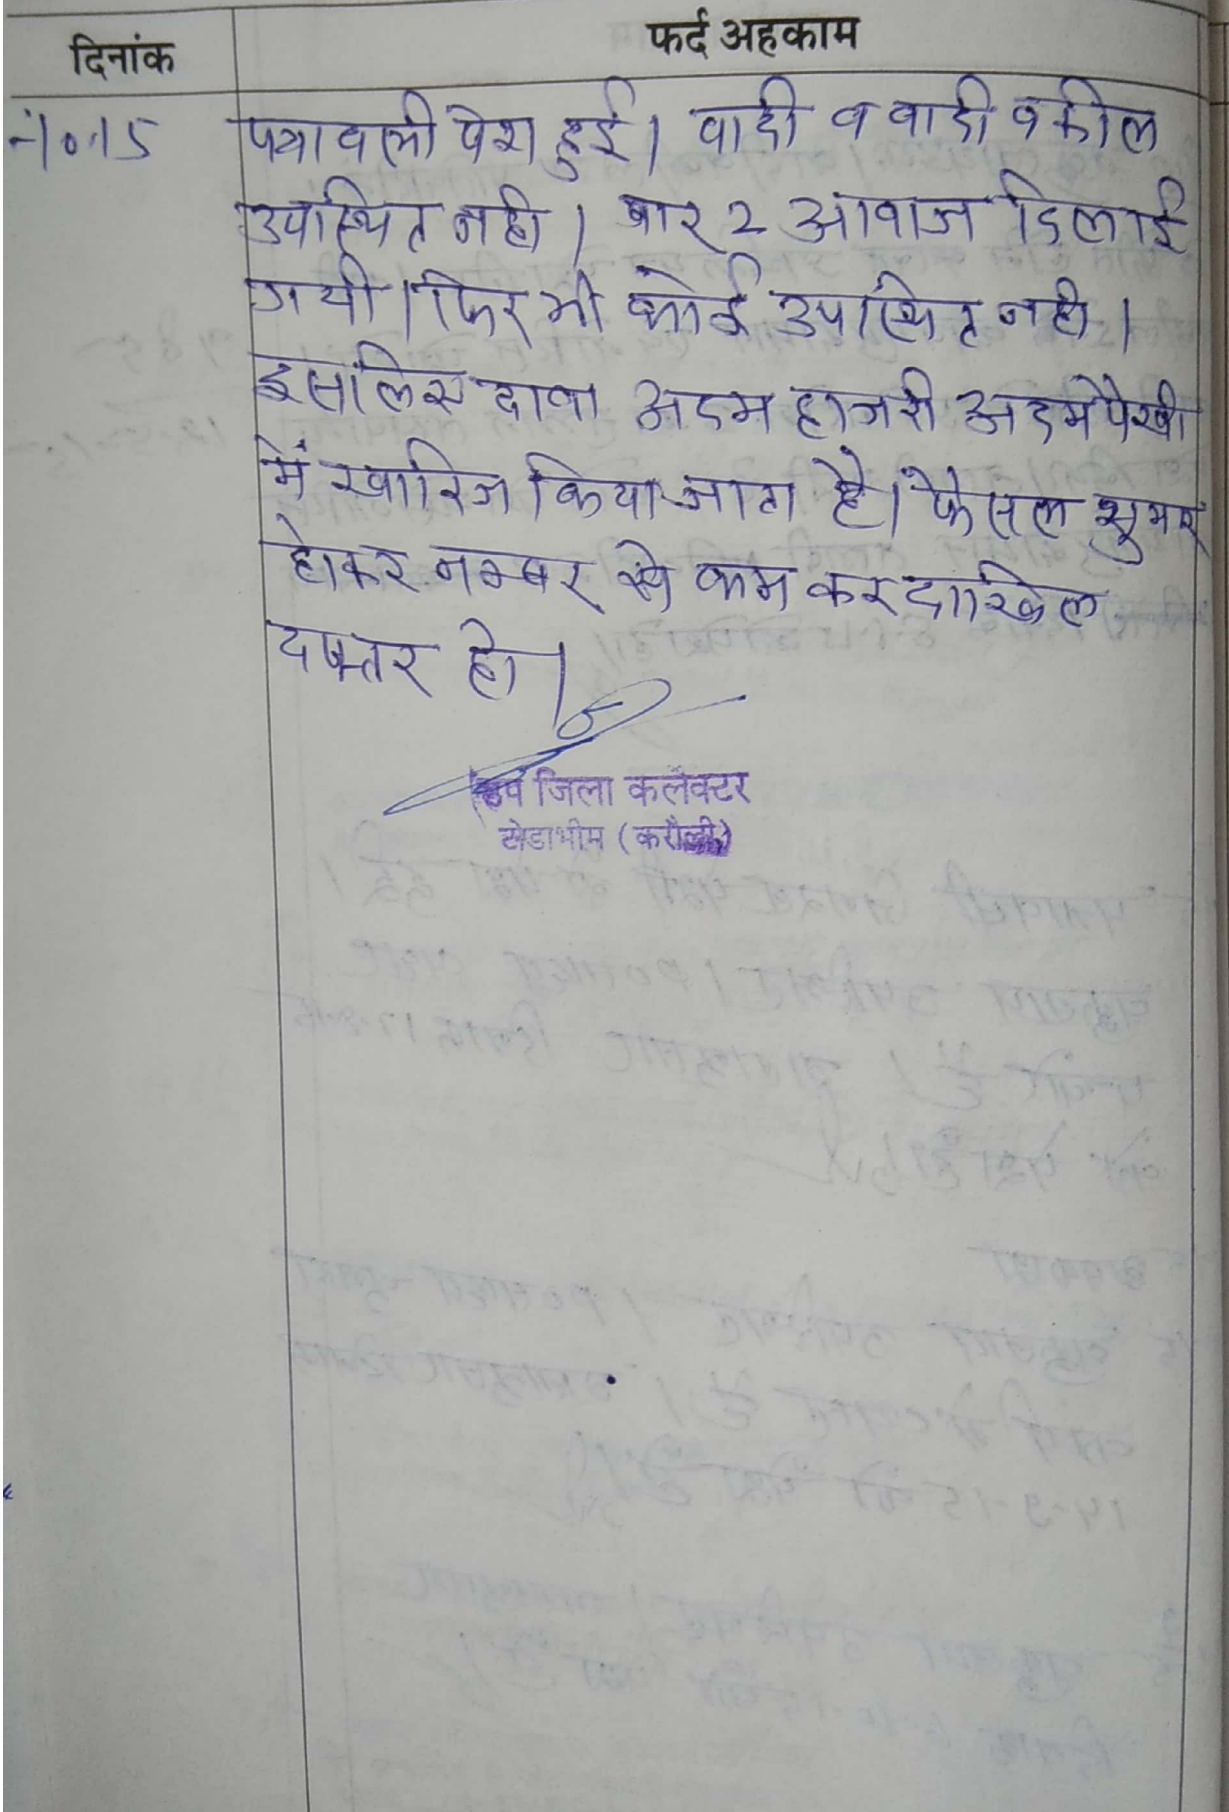 दिनांक
फर्द अहकाम
-10.15
पत्रावली पेश हुई। वादी व वादी वकील
उपस्थित नही। बार २ आवाज दिलाई
गयी। फिर भी कोई उपस्थित नही।
इसलिए दावा अदम हाजरी अदमपैरवी
में खारिज किया जाता है। फैसल शुमार
होकर नम्बर से कम कर दाखिल
दफ्तर हो।
उप जिला कलेक्टर
टोडाभीम (करौली)